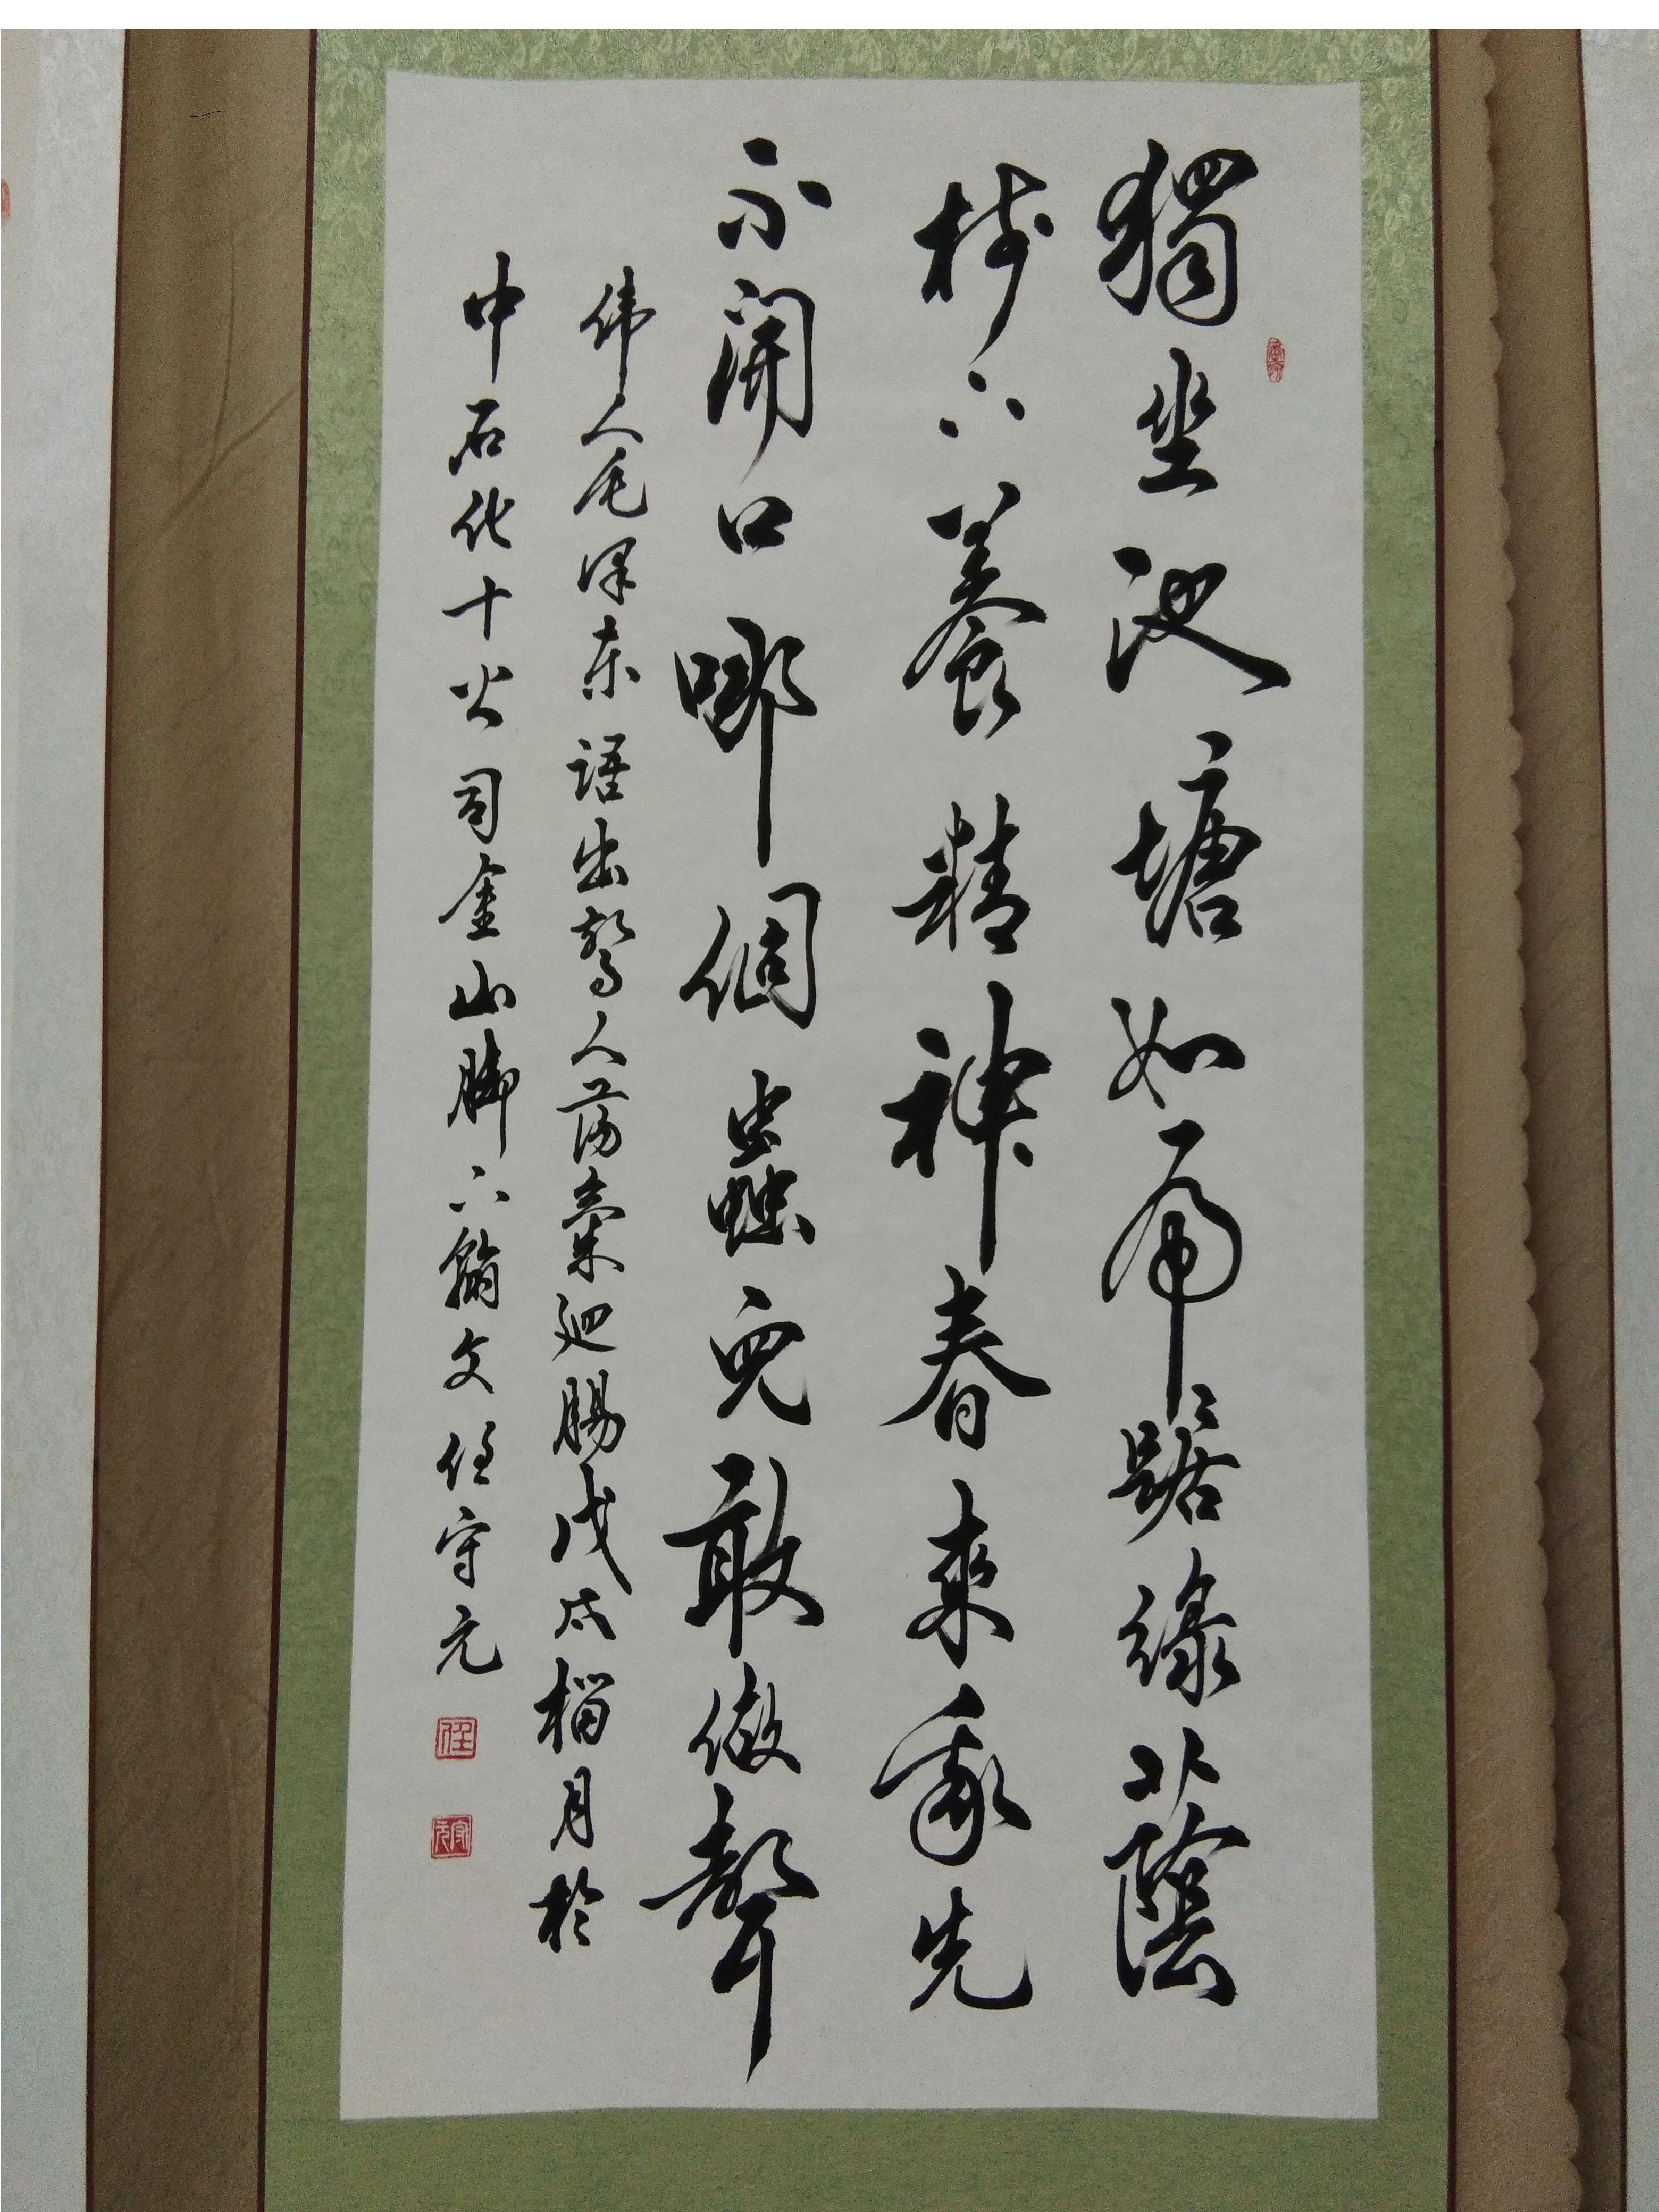 獨坐池塘如虎踞綠蔭
樹下養精神春來我先
不開口哪個蟲兒敢做聲
伟人毛泽东語出驚人荡氣迴腸戊戌榴月於
中石化十公司金山腳下翰文任守元
任
守元